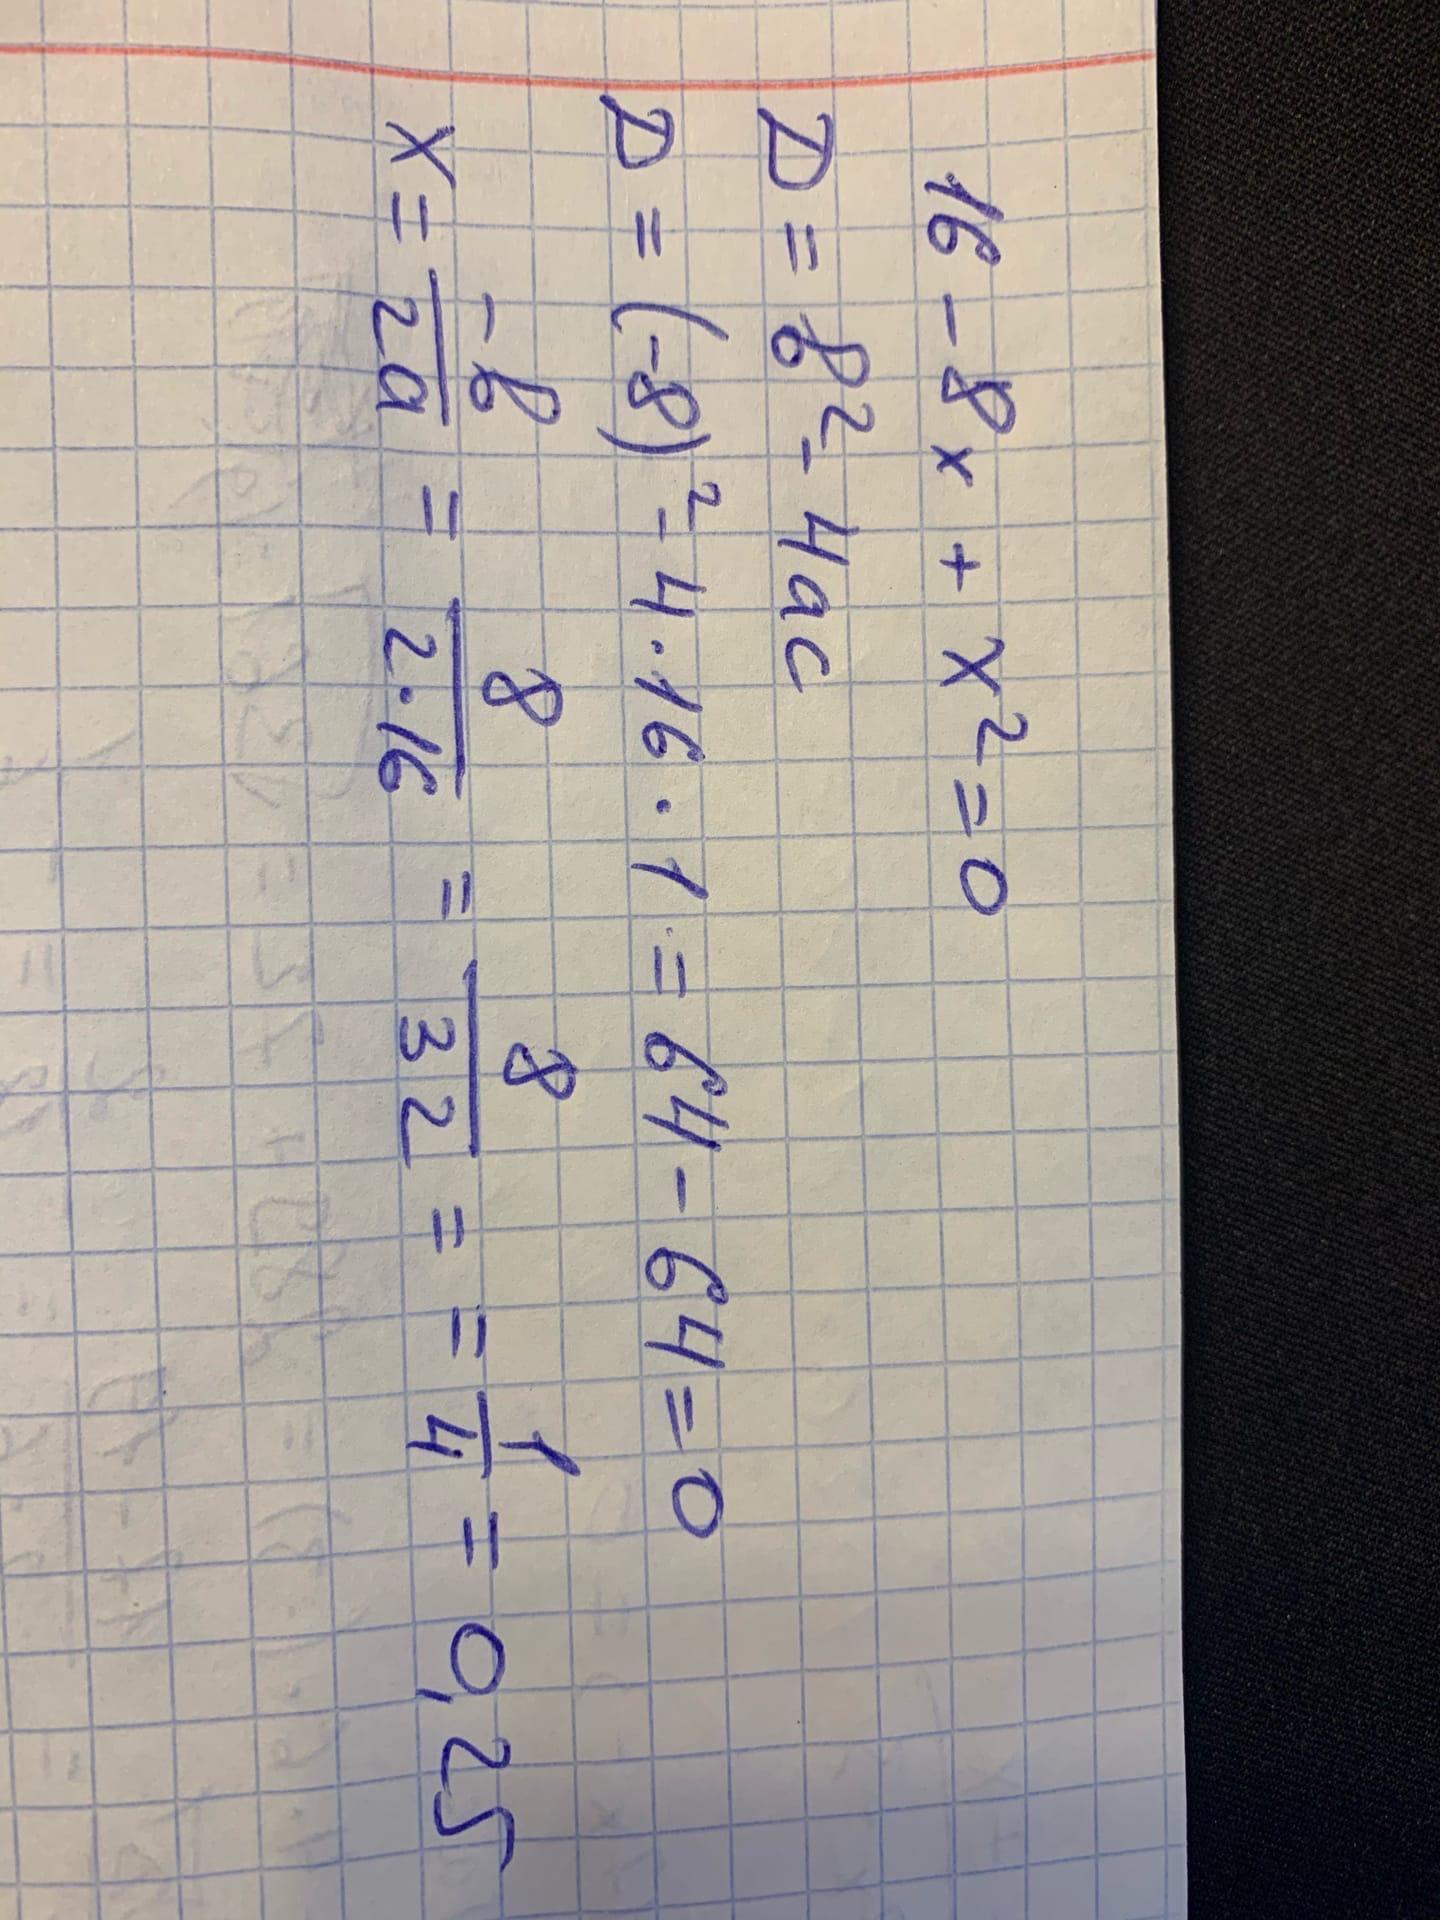 16 - 8x + x² = 0
D = b² - 4ac
D = (-8)² - 4 · 16 · 1 = 64 - 64 = 0
x = -b/2a = 8/2·16 = 8/32 = = 1/4 = 0,25